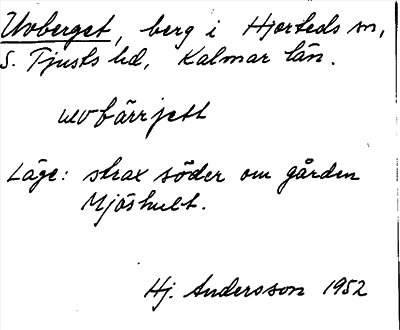 Uvberget, berg i Hjorteds sn,
S. Tjusts hd, Kalmar län.
uvbärrjett
Läge: strax söder om gården
Mjöshult.
Hj. Andersson 1952